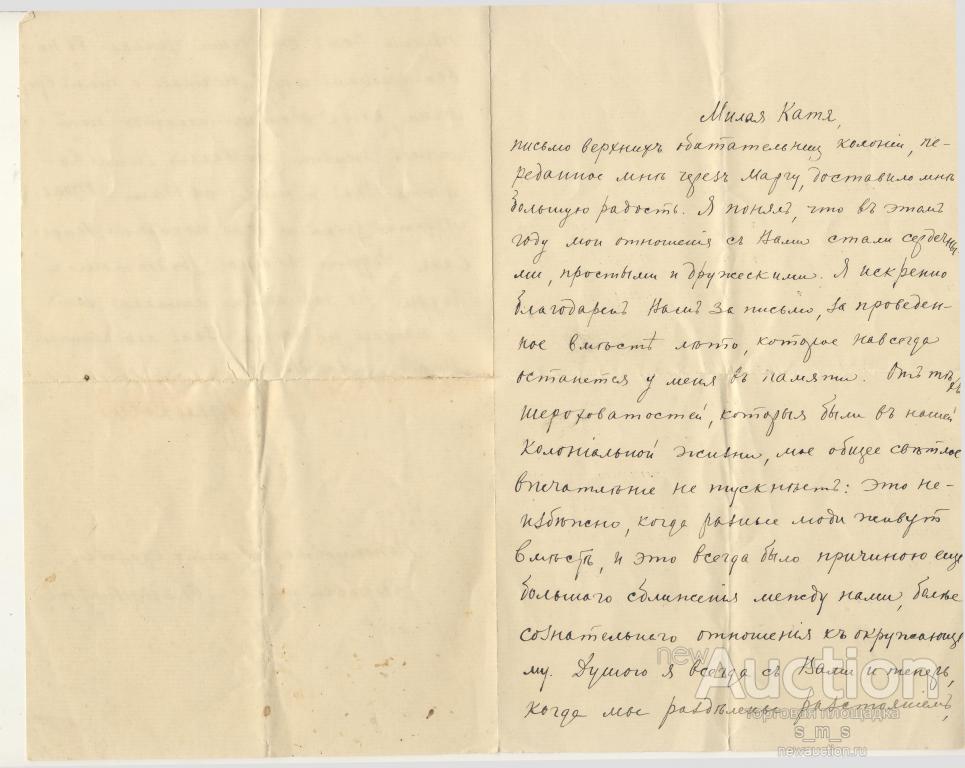 Милая Катя,
письмо верхнихъ обитательниц колоніи, пе-
реданное мнѣ черезъ Маргу, доставило мнѣ
большую радость. Я понялъ, что въ этомъ
году мои отношенія съ Вами стали сердечны-
ми, простыми и дружескими. Я искренно
благодаренъ Вамъ за письмо, за проведен-
ное вмѣстѣ лѣто, которое навсегда
останется у меня въ памяти. Отъ тѣхъ
шероховатостей, которыя были въ нашей
колоніальной жизни, мое общее свѣтлое
впечатлѣніе не тускнѣетъ: это не-
избѣжно, когда разные люди живутъ
вмѣстѣ, и это всегда было причиною еще
большаго сближенія между нами, болѣе
сознательнаго отношенія къ окружающе
му. Душою я всегда съ Вами и теперь,
когда мы раздѣлены разстояніемъ,
newAuction
торговая площадка
s_m_s
newauction.ru